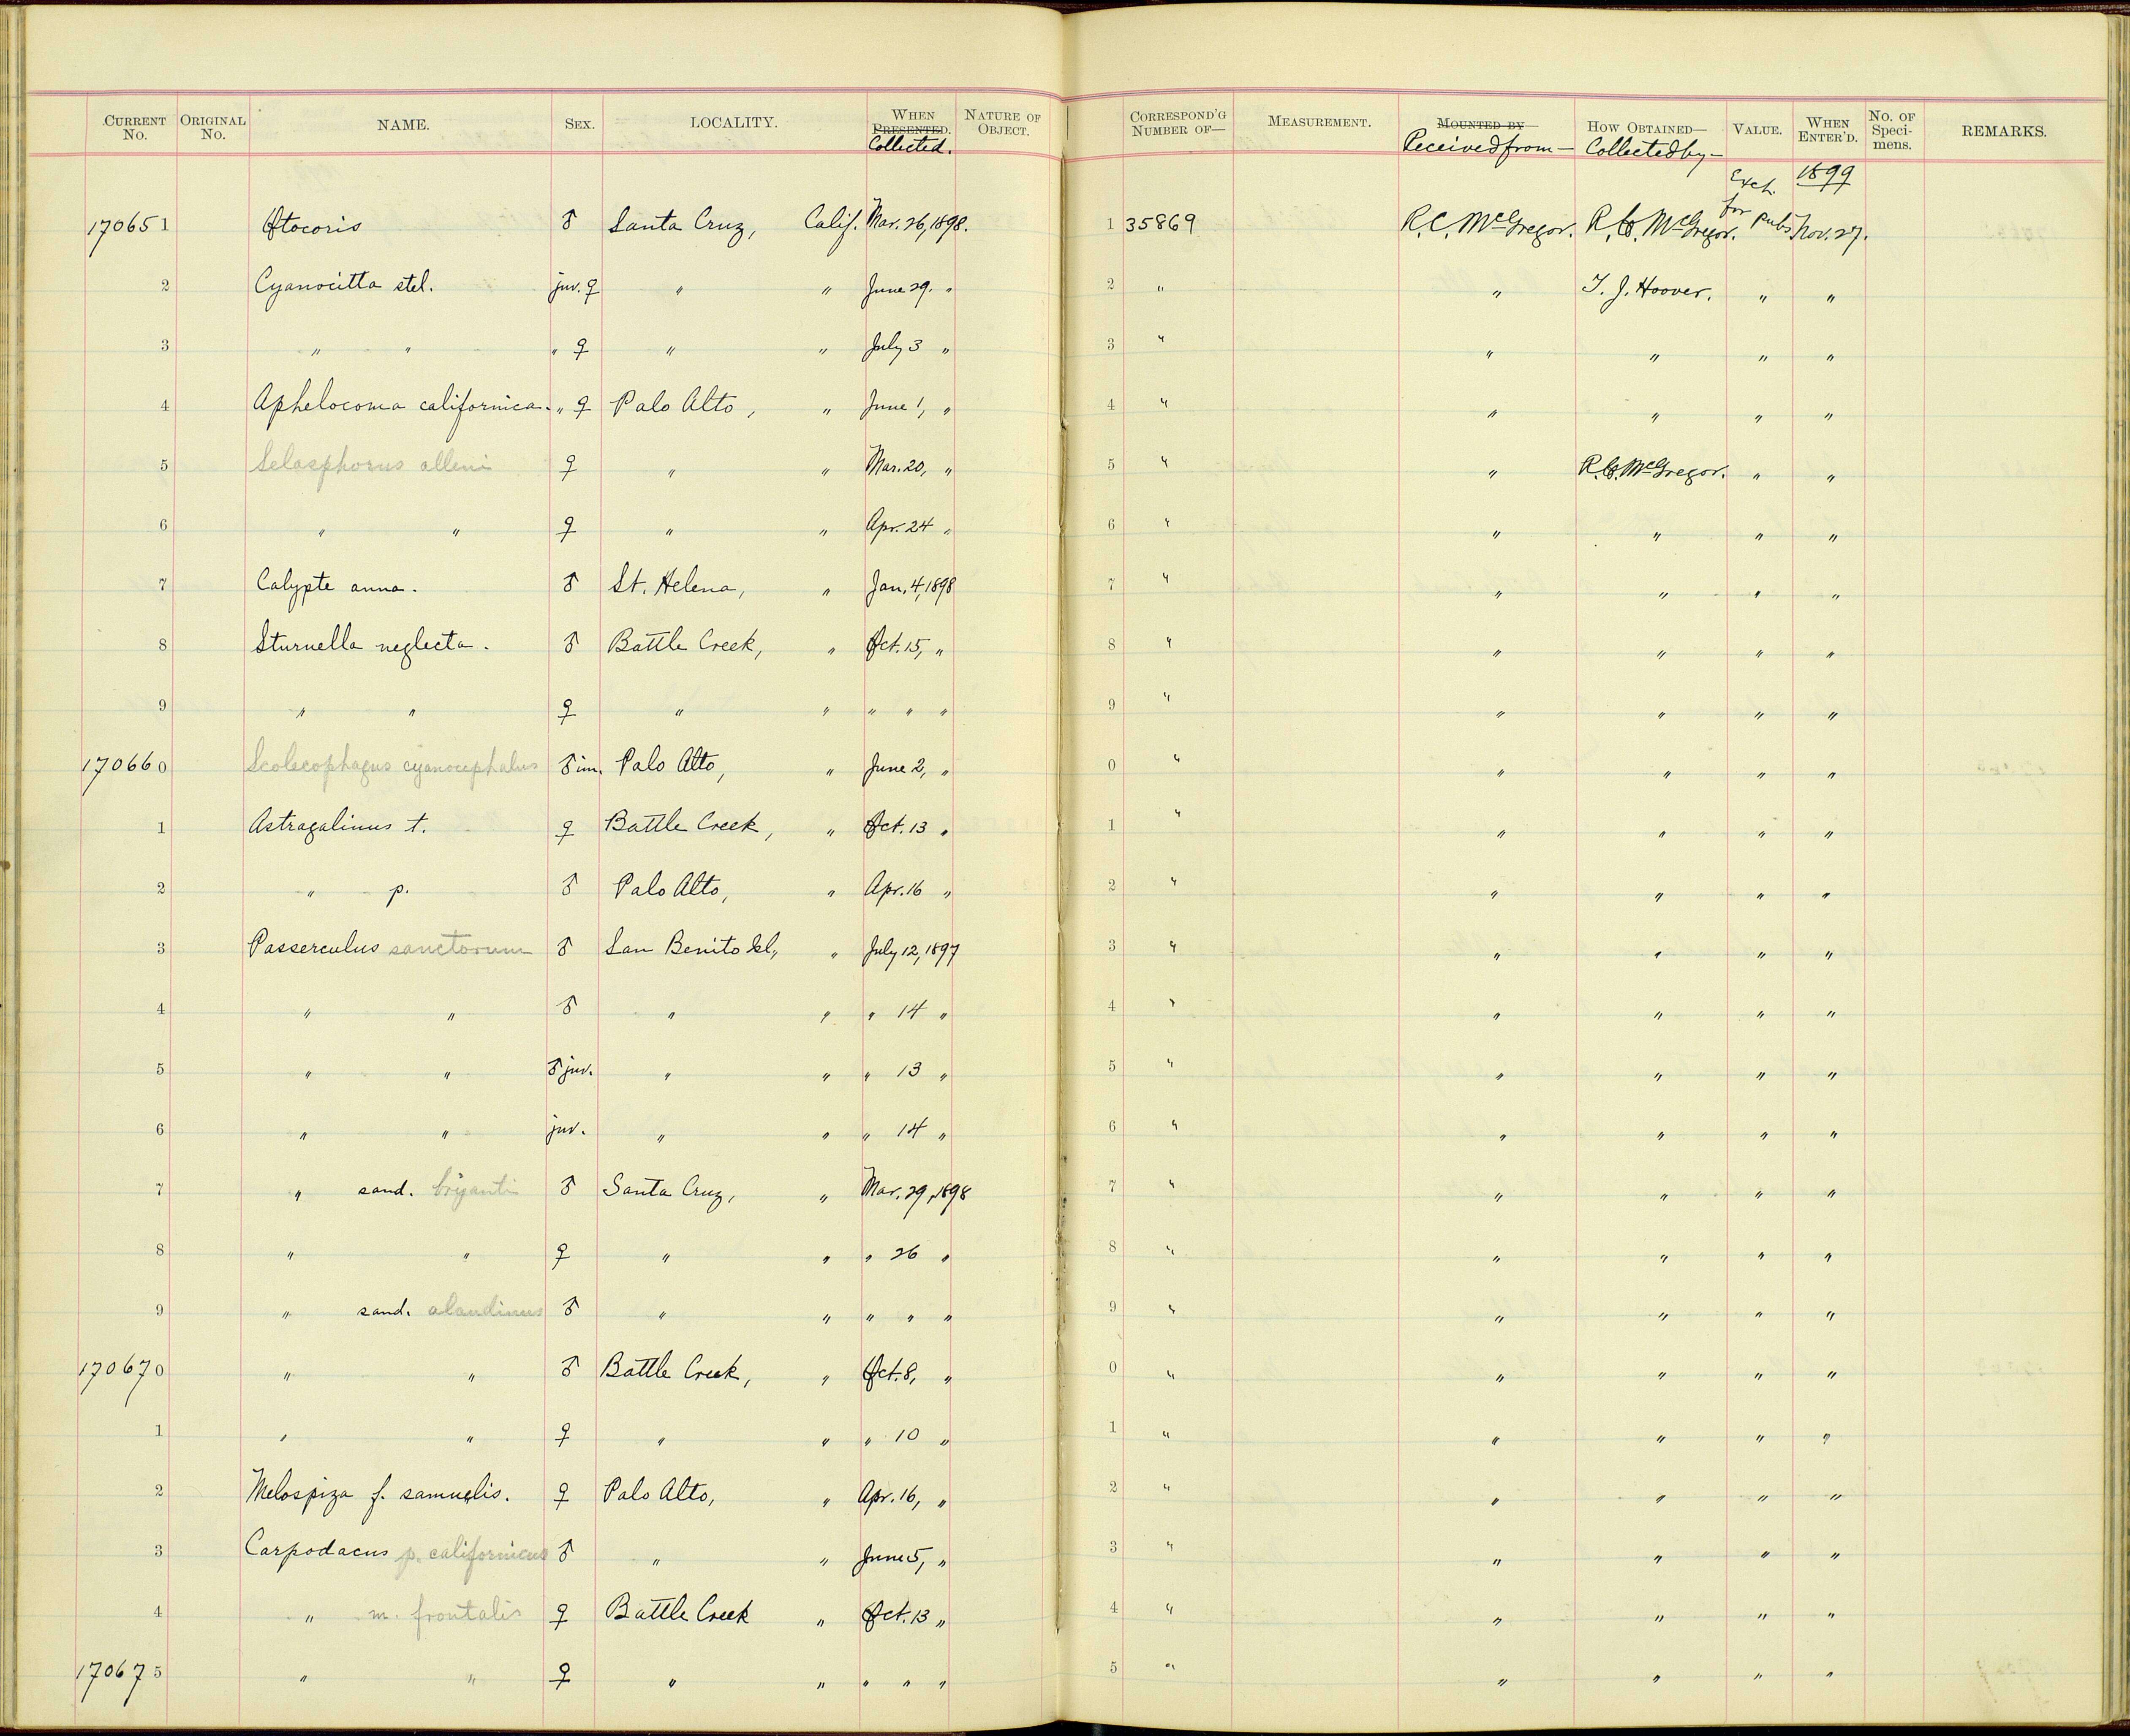 CURRENT No. ORIGINAL No. NAME. SEX. LOCALITY. WHEN PRESENTED. Collected. NATURE OF OBJECT. CORRESPOND'G NUMBER OF— MEASUREMENT. MOUNTED BY Received from— HOW OBTAINED— Collected by— VALUE. WHEN ENTER'D. No. OF Speci-mens. REMARKS.
Exch. for pubs 1899
170651 Otocoris ♂ Santa Cruz, Calif. Mar. 26, 1898. 1 35869 R.C. McGregor. R.C. McGregor. Nov. 27.
2 Cyanocitta stel. juv. ♀ " " June 29. " 2 " " T. J. Hoover. " "
3 " " " ♀ " " July 3 " 3 " " " " "
4 Aphelocoma californica. " ♀ Palo Alto, " June 1, " 4 " " " " "
5 Selasphorus alleni ♀ " " Mar. 20, " 5 " " R.C. McGregor. " "
6 " " ♀ " " Apr. 24 " 6 " " " " "
7 Calypte anna. ♂ St. Helena, " Jan. 4, 1898 7 " " " " "
8 Sturnella neglecta. ♂ Battle Creek, " Oct. 15, " 8 " " " " "
9 " " ♀ " " " " " 9 " " " " "
170660 Scolecophagus cyanocephalus ♂ im. Palo Alto, " June 2, " 0 " " " " "
1 Astragalinus t. ♀ Battle Creek, " Oct. 13 " 1 " " " " "
2 " p. ♂ Palo Alto, " Apr. 16 " 2 " " " " "
3 Passerculus sanctorum ♂ San Benito Isl, " July 12, 1897 3 " " " " "
4 " " ♂ " " " 14 " 4 " " " " "
5 " " ♂ juv. " " " 13 " 5 " " " " "
6 " " juv. " " " 14 " 6 " " " " "
7 " sand. bryanti ♂ Santa Cruz, " Mar. 29, 1898 7 " " " " "
8 " " ♀ " " " 26 " 8 " " " " "
9 " sand. alaudinus ♂ " " " " " 9 " " " " "
170670 " " ♂ Battle Creek, " Oct. 8, " 0 " " " " "
1 " " ♀ " " " 10 " 1 " " " " "
2 Melospiza f. samuelis. ♀ Palo Alto, " Apr. 16, " 2 " " " " "
3 Carpodacus p. californicus ♂ " " June 5, " 3 " " " " "
4 " m. frontalis ♀ Battle Creek " Oct. 13 " 4 " " " " "
170675 " " ♀ " " " " " 5 " " " " "